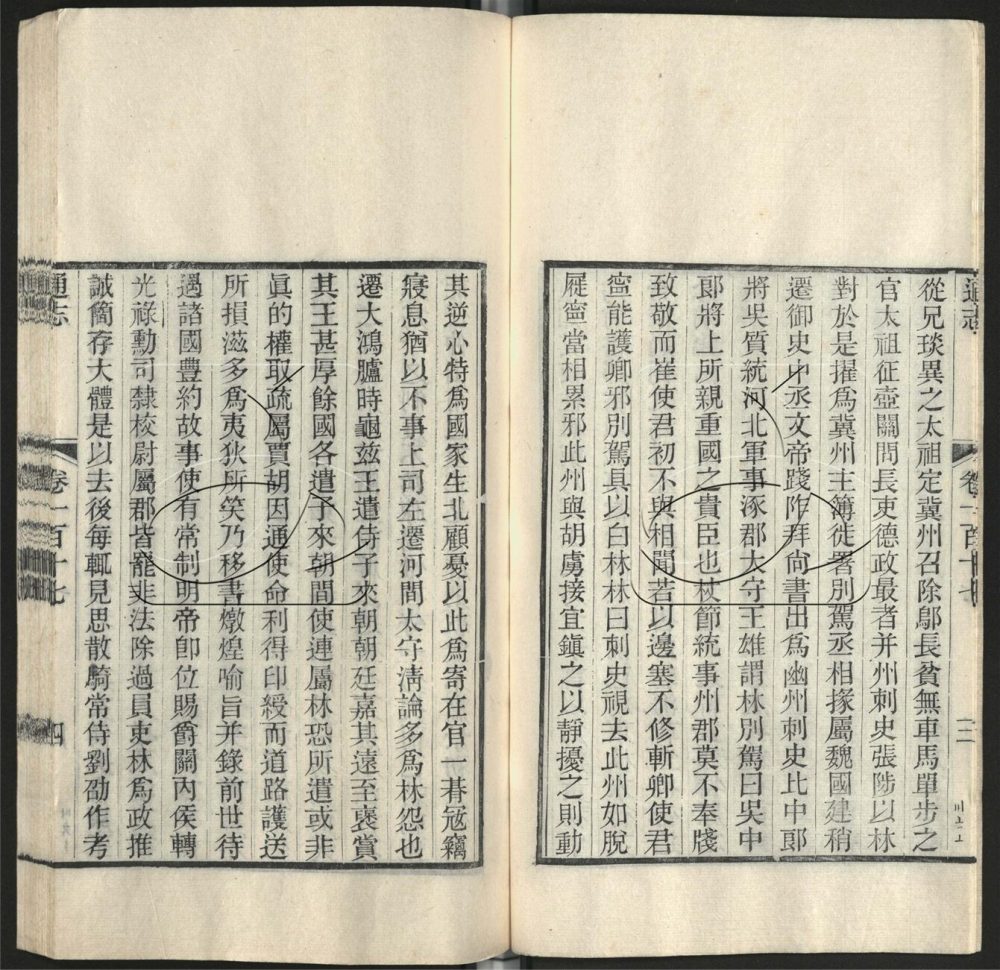 通志
卷一百十七
三
從兄琰異之太祖定冀州召除鄔長貧無車馬單步之
官太祖征壺關問長吏德政最者并州刺史張陟以林
對於是擢爲冀州主簿徙署別駕丞相掾屬魏國建稍
遷御史中丞文帝踐阼拜尙書出爲幽州刺史比中郞
將吳質統河北軍事涿郡太守王雄謂林別駕曰吳中
郞將上所親重國之貴臣也杖節統事州郡莫不奉牋
致敬而崔使君初不與相聞若以邊塞不修斬卿使君
寧能護卿邪別駕具以白林林曰刺史視去此州如脫
屣寧當相累邪此州與胡虜接宜鎭之以靜擾之則動
其逆心特爲國家生北顧憂以此爲寄在官一朞冦竊
寢息猶以不事上司左遷河間太守淸論多爲林怨也
遷大鴻臚時龜茲王遣侍子來朝朝廷嘉其遠至褒賞
其王甚厚餘國各遣子來朝間使連屬林恐所遣或非
眞的權取疏屬賈胡因通使命利得印綬而道路護送
所損滋多爲夷狄所笑乃移書燉煌喻旨并錄前世待
遇諸國豐約故事使有常制明帝卽位賜爵關內侯轉
光祿勳司隸校尉屬郡皆罷非法除過員吏林爲政推
誠簡存大體是以去後每輒見思散騎常侍劉劭作考
通志
卷一百十七
四